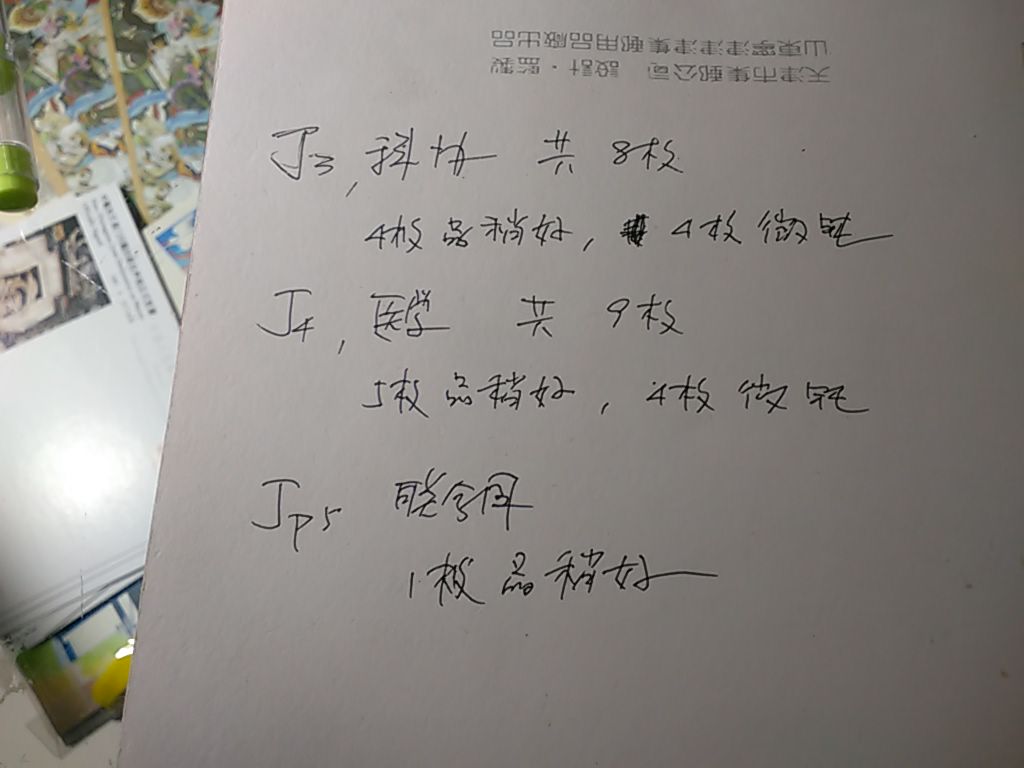 山東寧津津津集郵用品廠出品
天津市集郵公司 設計·監製
J3,科协 共 8枚
4枚品稍好, 4枚微黄
J4,医学 共 9枚
5枚品稍好, 4枚微黄
JP5 联合国
1枚品稍好